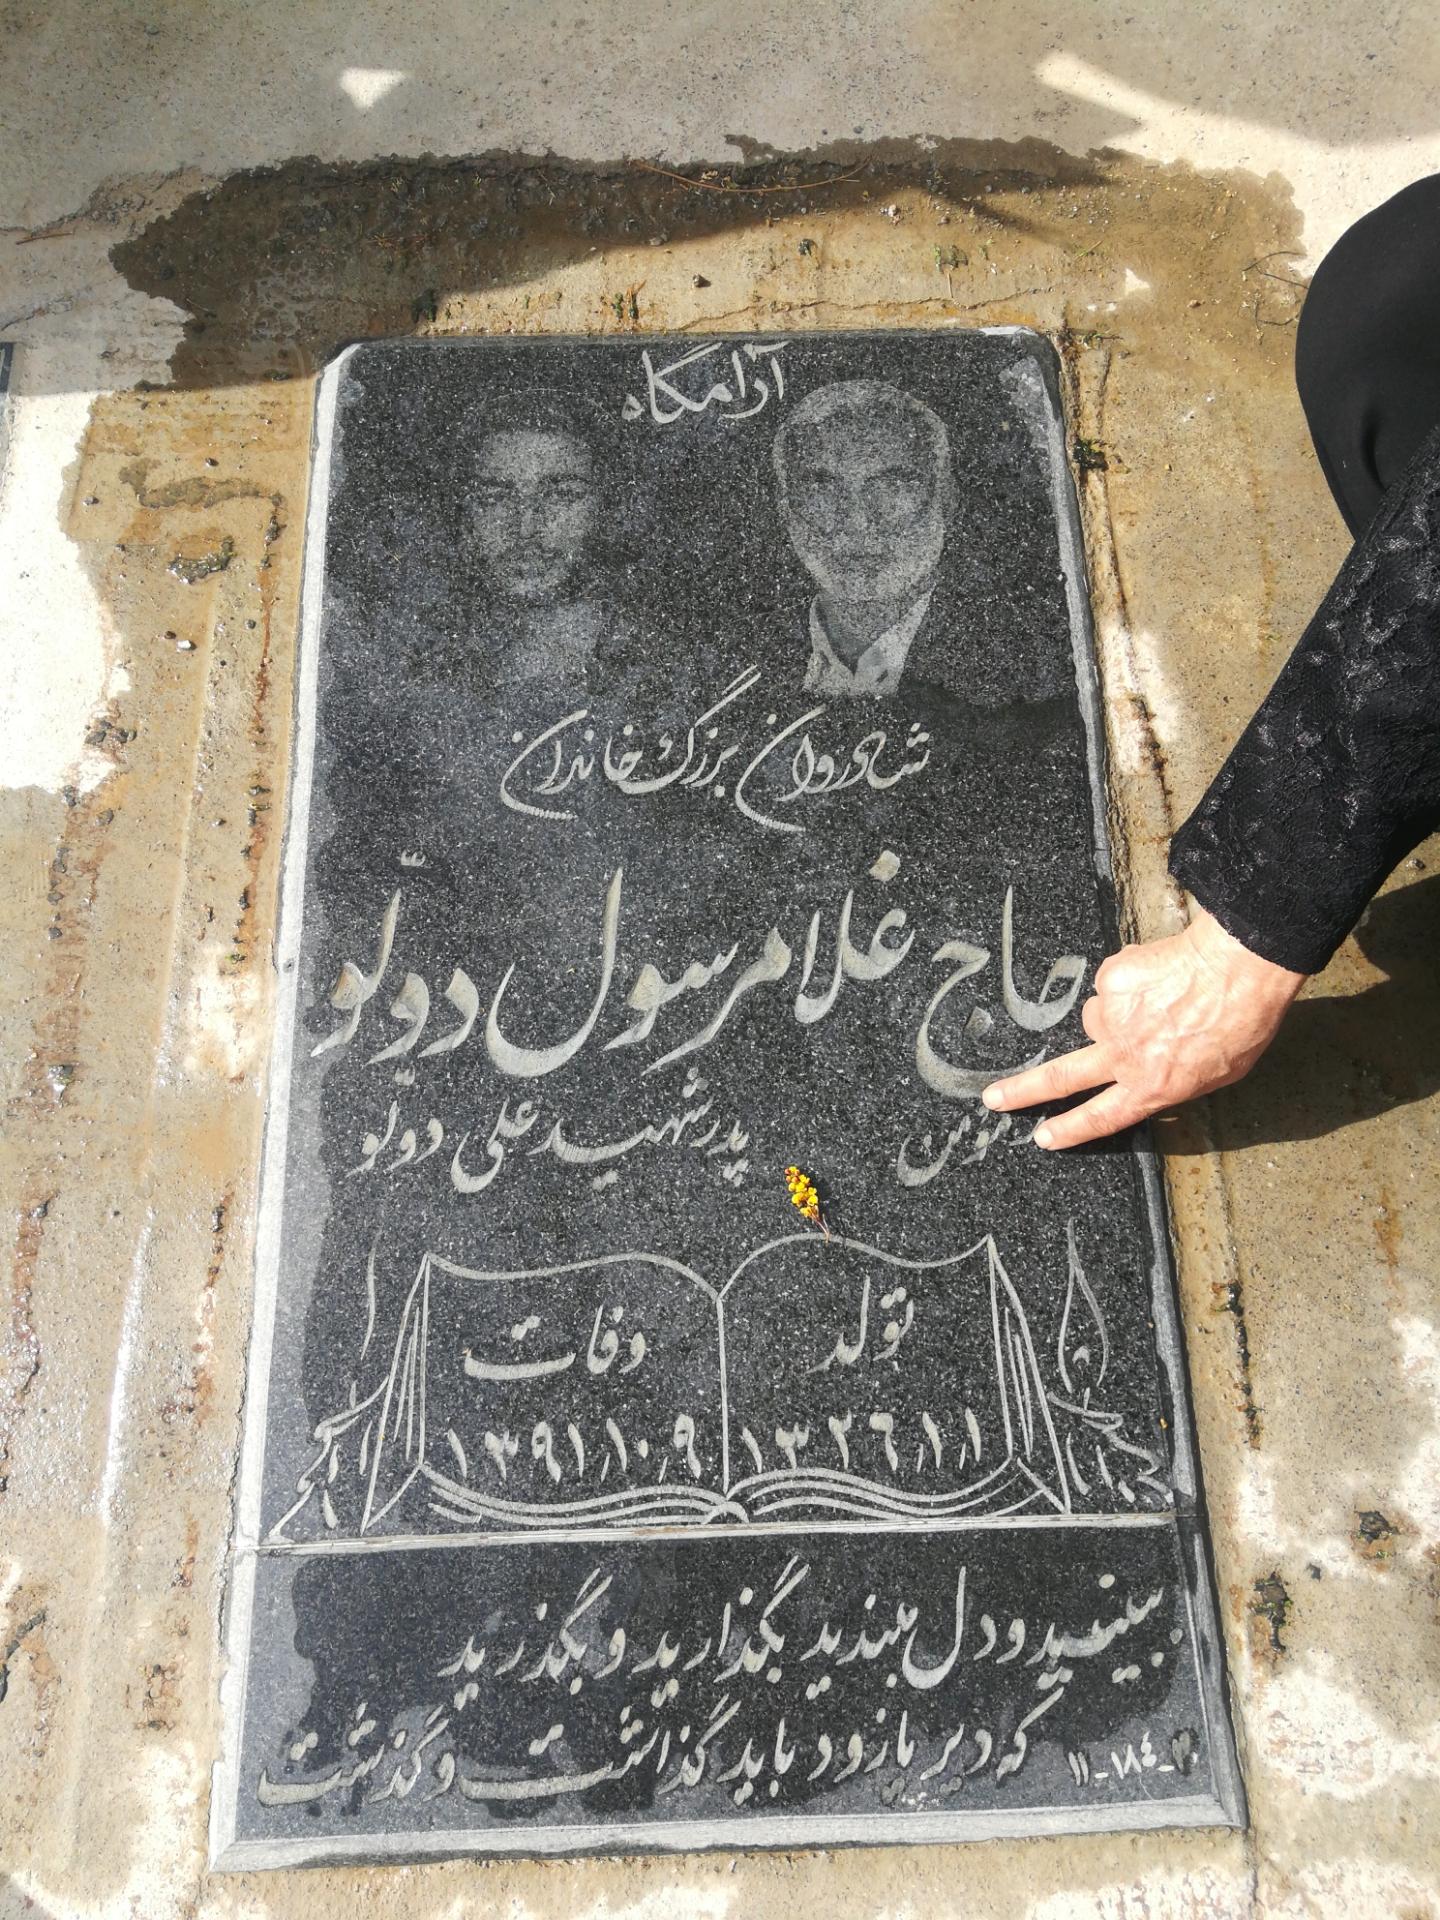 آرامگاه
شادروان بزرگ خاندان
حاج غلامرسول دوّلو
مومن پدر شهید علی دوّلو
تولد وفات
۱۳۲۶٫۱٫۱ ۱۳۹۱٫۱۰٫۹
ببینید و دل مبندید بگذارید و بگذرید
که دیر یا زود باید گذاشت و گذشت
۱۱-۱۸۴-۲۰